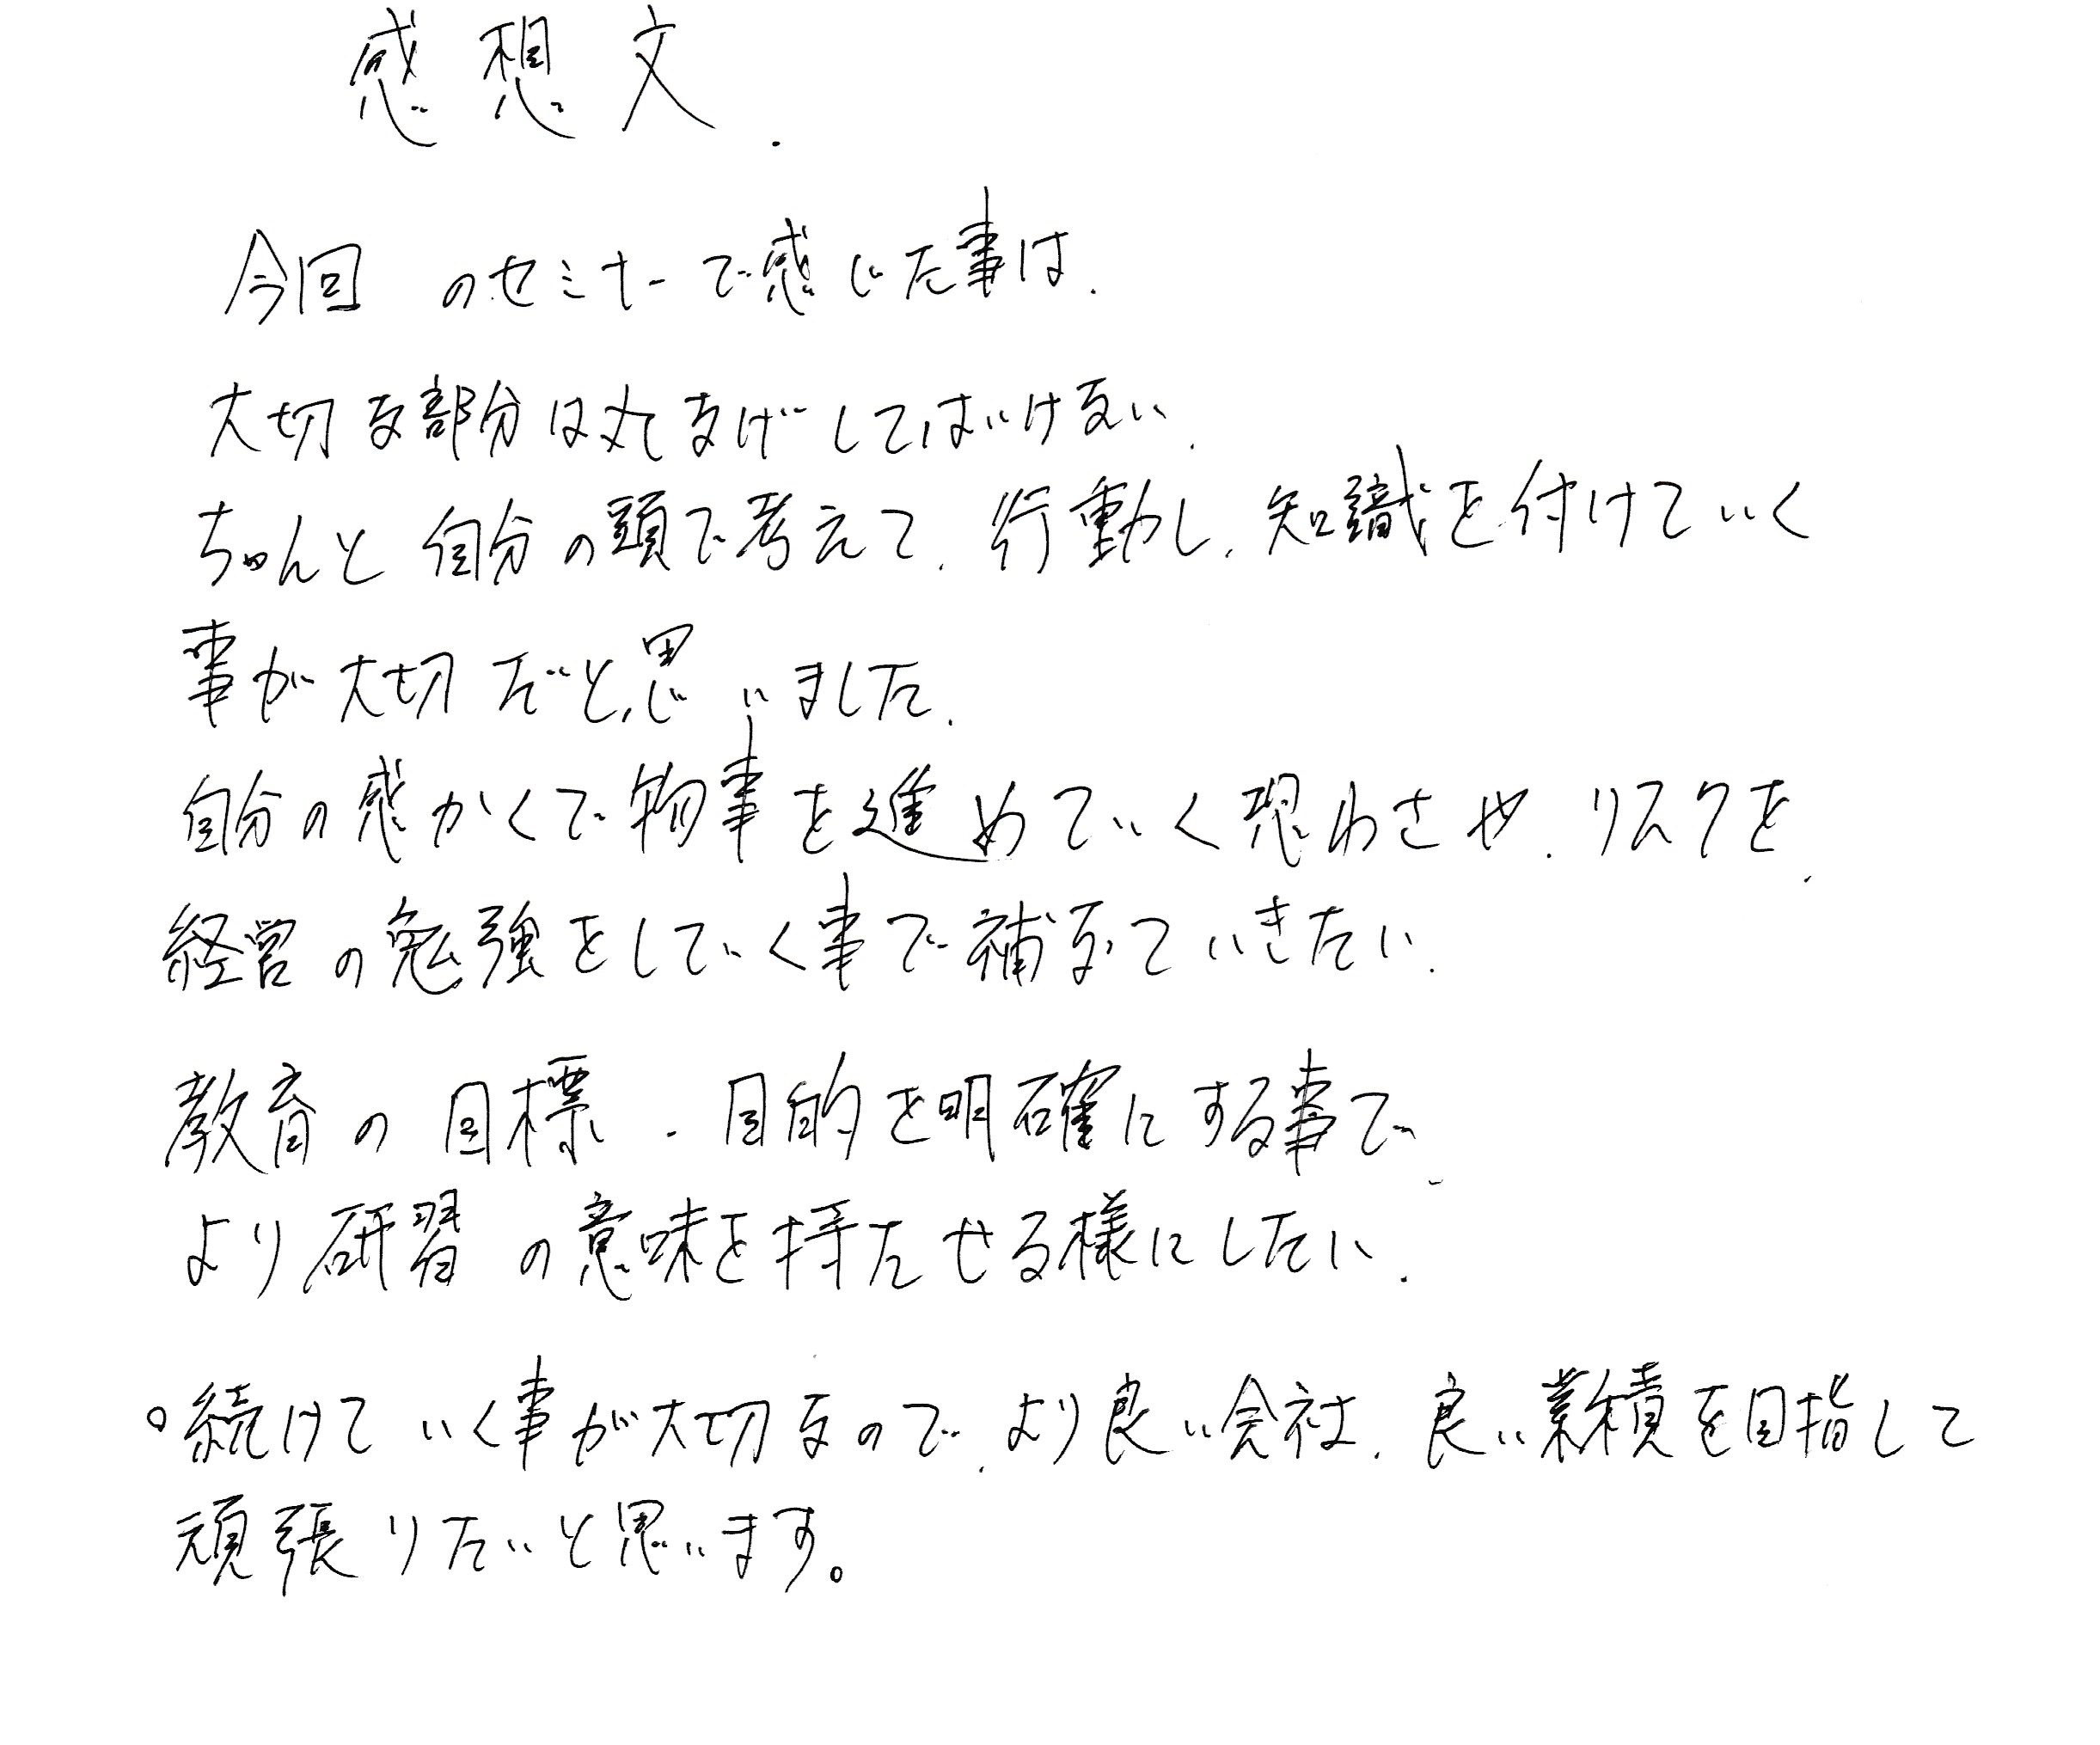 感想文.
今回のセミナーで感じた事は.
大切な部分は丸なげしてはいけない.
ちゃんと自分の頭で考えて.行動し.知識を付けていく
事が大切だと思いました.
自分の感かくで物事を進めていく恐わさや.リスクを.
経営の勉強をしていく事で補なっていきたい.
教育の目標.目的を明確にする事で、
より研習の意味を持たせる様にしたい.
○続けていく事が大切なので.より良い会社.良い業積を目指して
頑張りたいと思います。